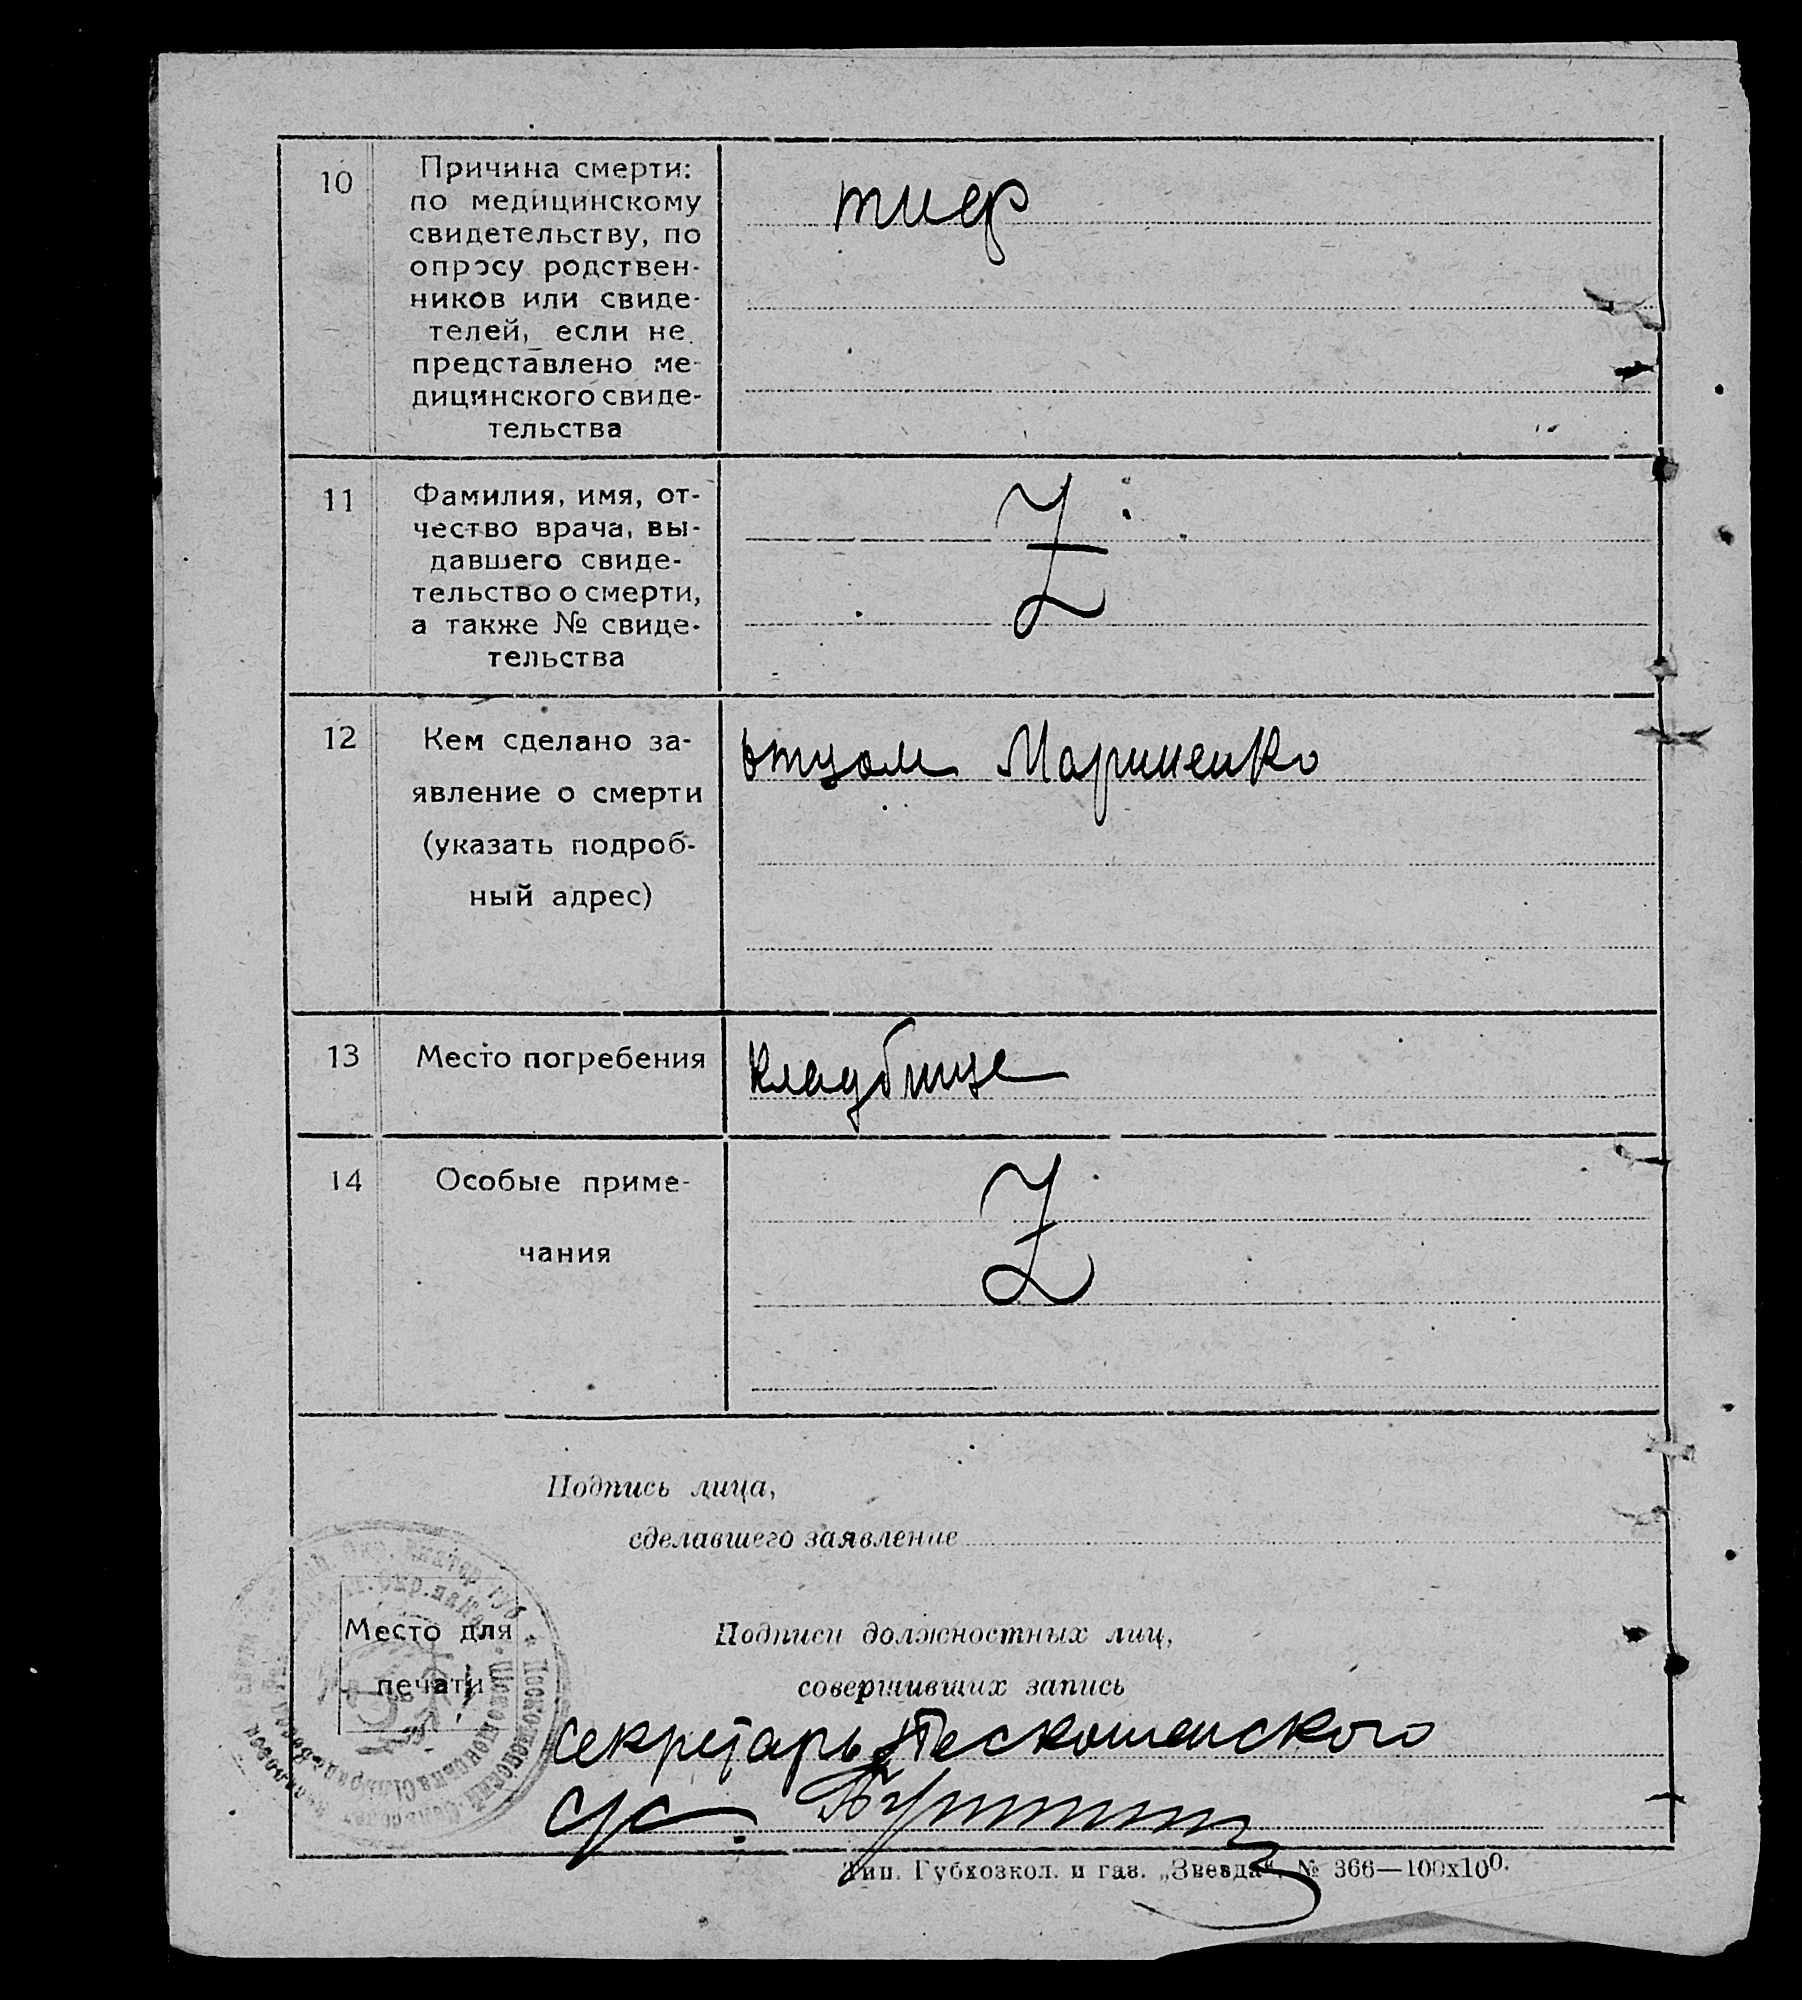 10
Причина смерти:
по медицинскому
свидетельству, по
опросу родствен-
ников или свиде-
телей, если не
представлено ме-
дицинского свиде-
тельства
тиф
11
Фамилия, имя, от-
чество врача, вы-
давшего свиде-
тельство о смерти,
а также № свиде-
тельства
Z
12
Кем сделано за-
явление о смерти
(указать подроб-
ный адрес)
отцом Мариненко
13
Место погребения
кладбище
14
Особые приме-
чания
Z
Подпись лица,
сделавшего заявление
Место для
печати
Подписи должностных лиц,
совершивших запись
секретарь Пескошенского
с/с.
Тип. Губхозкол. и газ. „Звезда“. № 366—100х100.